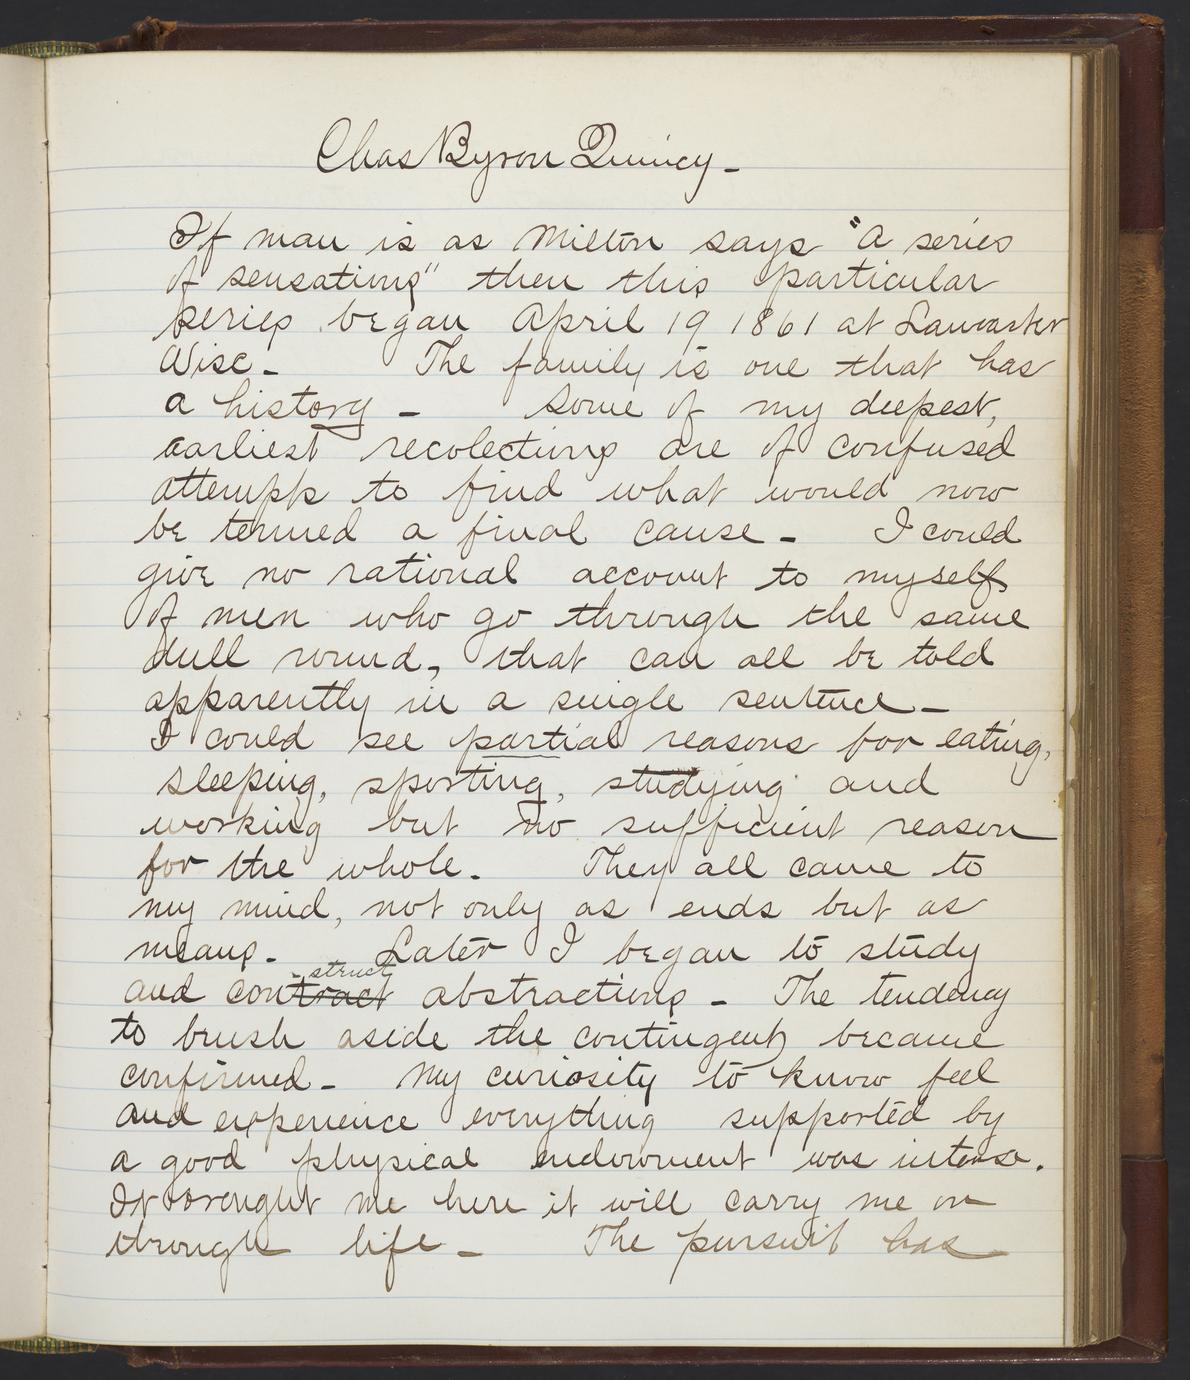 Chas Byron Quincy -
If man is as Milton says "A series
of sensations" then this particular
series began April 19 1861 at Lancaster
Wisc - The family is one that has
a history - Some of my deepest,
earliest recolections are of confused
attempts to find what would now
be termed a final cause - I could
give no rational account to myself
of men who go through the same
dull round, that can all be told
apparently in a single sentence -
I could see partial reasons for eating,
sleeping, sporting, studying and
working but no sufficient reason
for the whole. They all came to
my mind, not only as ends but as
means. Later I began to study
and contract struct abstractions - The tendency
to brush aside the contingent became
confirmed - My curiosity to know feel
and experience everything supported by
a good physical endowment was intense.
It brought me here it will carry me on
through life - The pursuit has